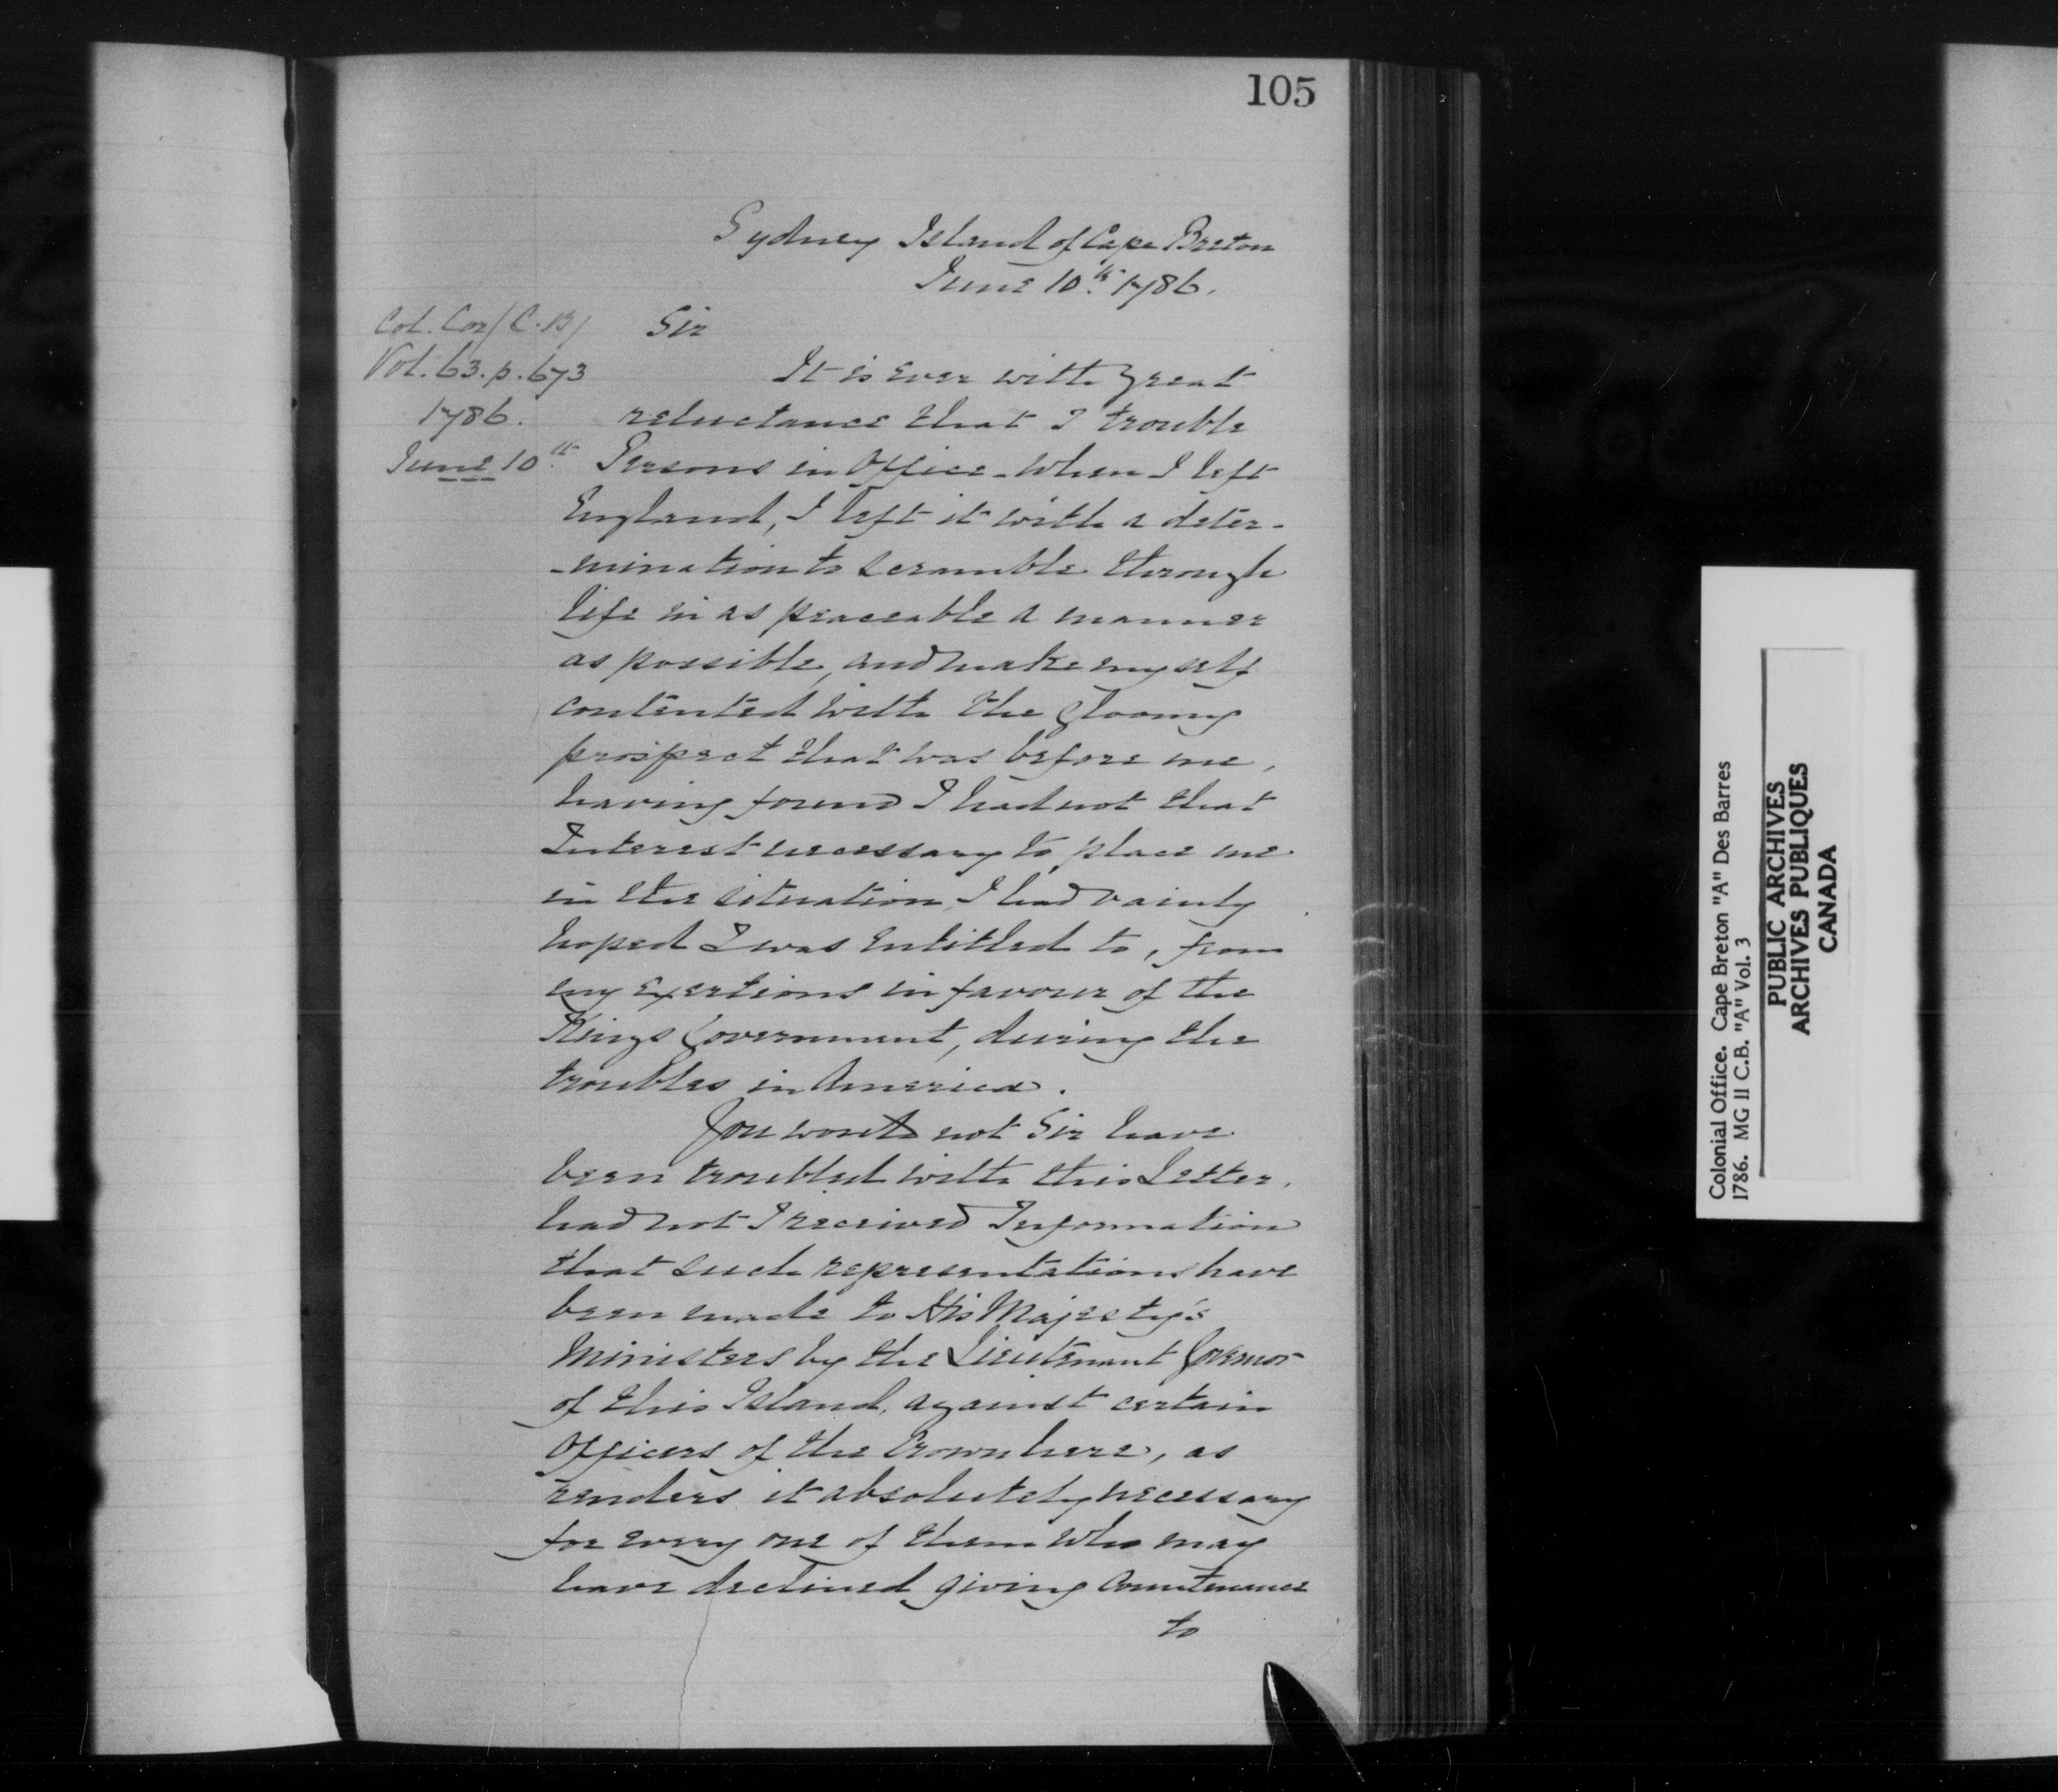 105
Sydney Island of Cape Breton
June 10th 1786.
Col. Cor/ C.B/
Vol. 63. p. 673
1786.
June 10th
Sir
It is ever with great
reluctance that I trouble
Persons in Office - When I left
England, I left it with a deter-
-mination to scramble through
life in as peaceable a manner
as possible, and make myself
contented with the gloomy
prospect that was before me,
having found I had not that
Interest necessary to place me
in the situation, I had vainly
hoped I was Entitled to, from
my Exertions in favour of the
Kings Government, during the
troubles in America.
You would not Sir have
been troubled with this Letter,
had not I received Information
that such representations have
been made to His Majesty's
Ministers by the Lieutenant Governor
of this Island, against certain
Officers of the Crown here, as
renders it absolutely necessary
for every one of them who may
have declined giving Countenance
to
Colonial Office. Cape Breton "A" Des Barres
1786. MG 11 C.B. "A" Vol. 3
PUBLIC ARCHIVES
ARCHIVES PUBLIQUES
CANADA